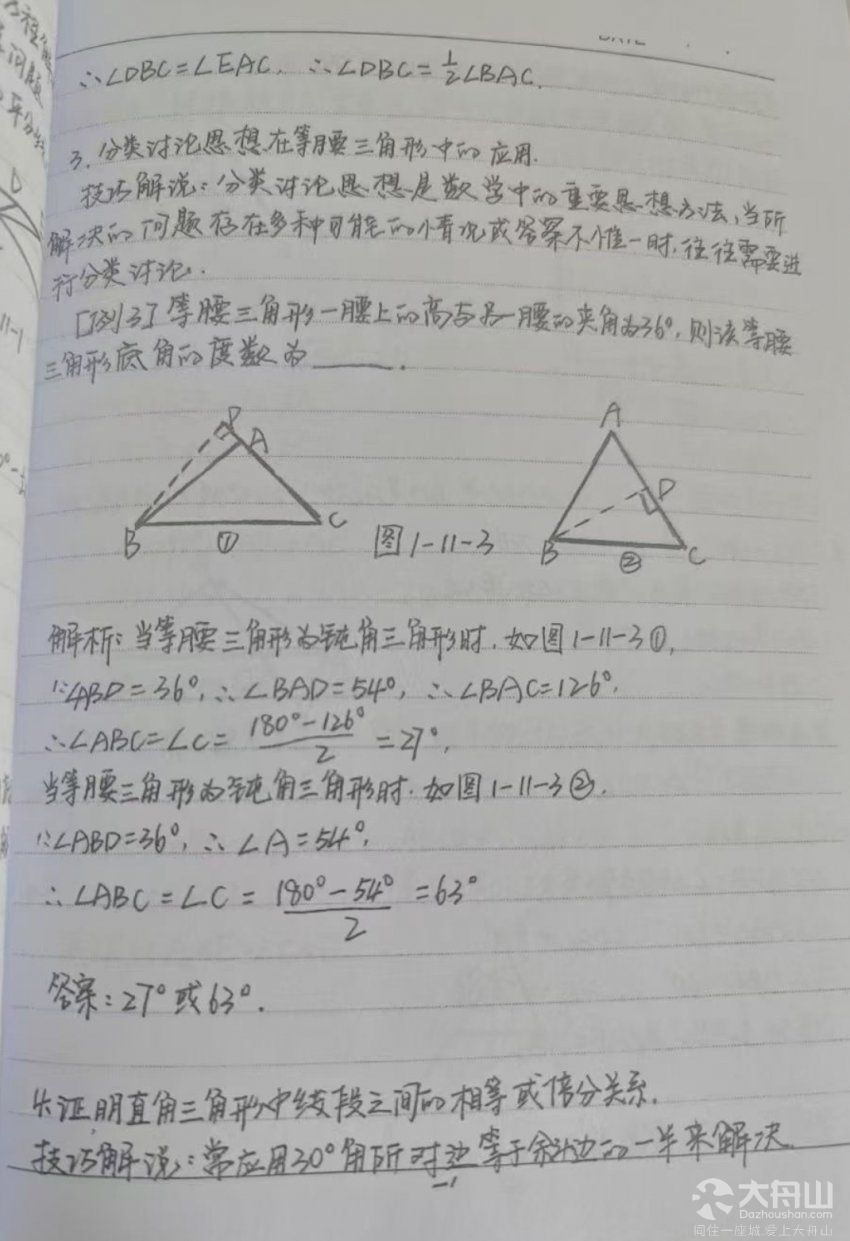 DATE
∴∠DBC=∠EAC, ∴∠DBC=½∠BAC.
3. 分类讨论思想在等腰三角形中的应用.
技巧解说: 分类讨论思想是数学中的重要思想方法, 当所
解决的问题存在多种可能的情况或答案不惟一时, 往往需要进
行分类讨论.
[例3] 等腰三角形一腰上的高与另一腰的夹角为36°, 则该等腰
三角形底角的度数为______.
D
A
B
C
①
图1-11-3
A
D
B
C
②
解析: 当等腰三角形为钝角三角形时, 如图1-11-3①,
∵∠ABD=36°, ∴∠BAD=54°, ∴∠BAC=126°,
∴∠ABC=∠C=(180°-126°)/2=27°,
当等腰三角形为钝角三角形时, 如图1-11-3②.
∵∠ABD=36°, ∴∠A=54°,
∴∠ABC=∠C=(180°-54°)/2=63°
答案: 27°或63°.
4. 证明直角三角形中线段之间的相等或倍分关系.
技巧解说: 常应用30°角所对边等于斜边的一半来解决
大舟山
Dazhoushan.com
同住一座城 爱上大舟山